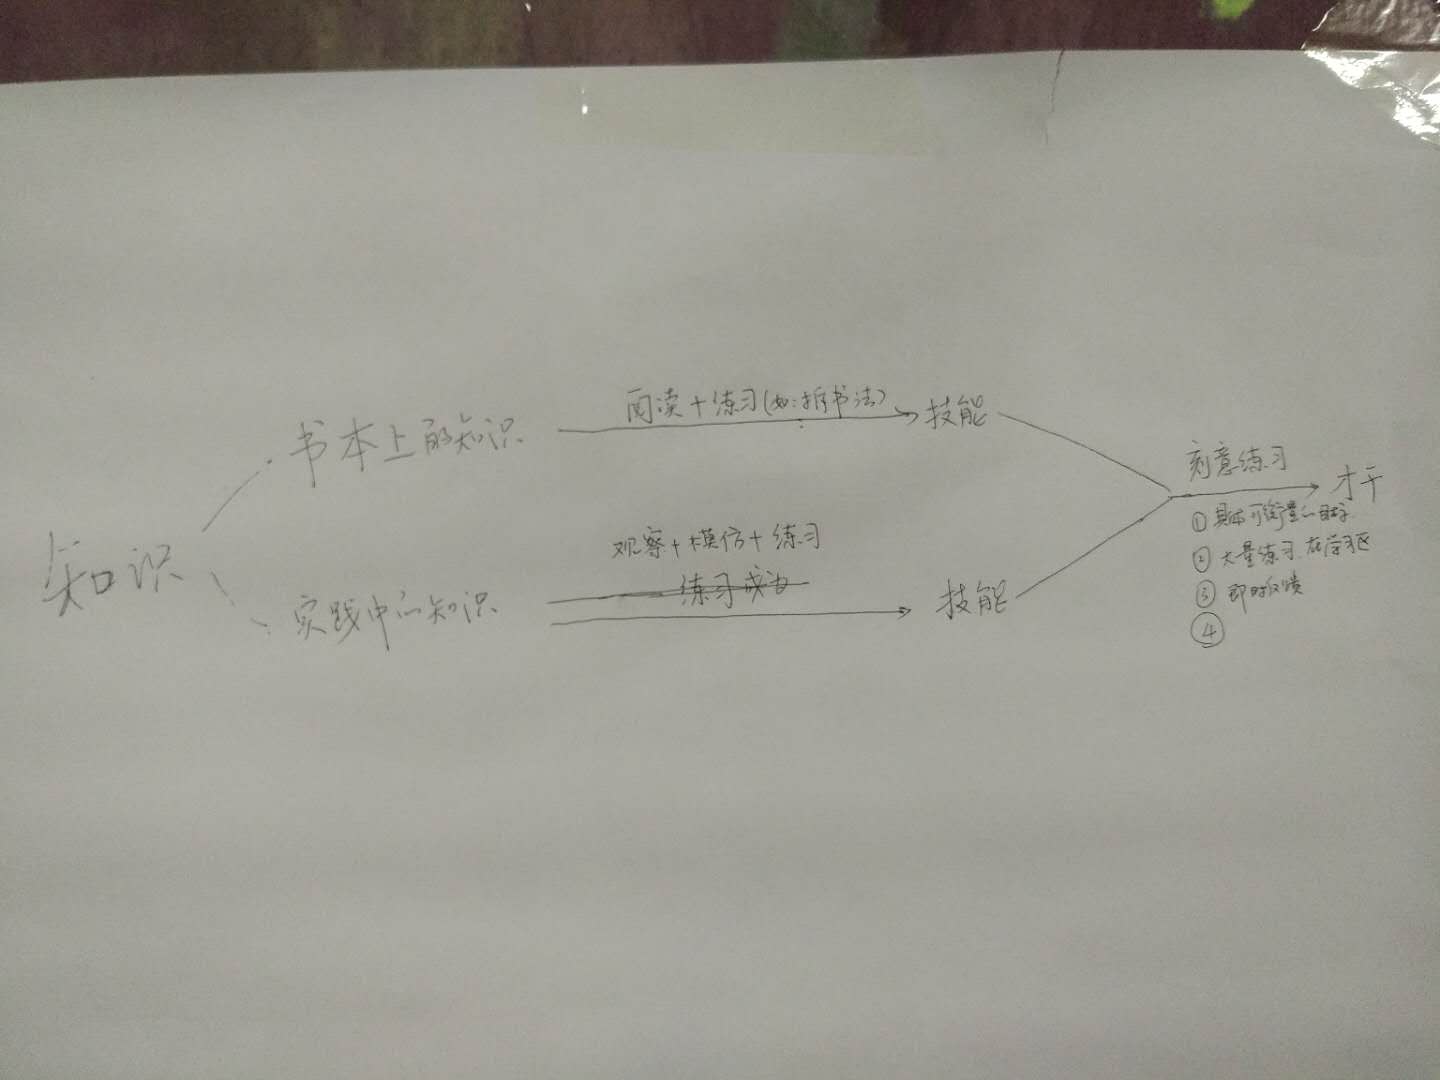 知识
书本上的知识
阅读+练习(如:拆书法)
技能
实践中的知识
观察+模仿+练习
练习成为
技能
刻意练习
才干
①具体可衡量的目标
②大量练习.在学习区
③即时反馈
④